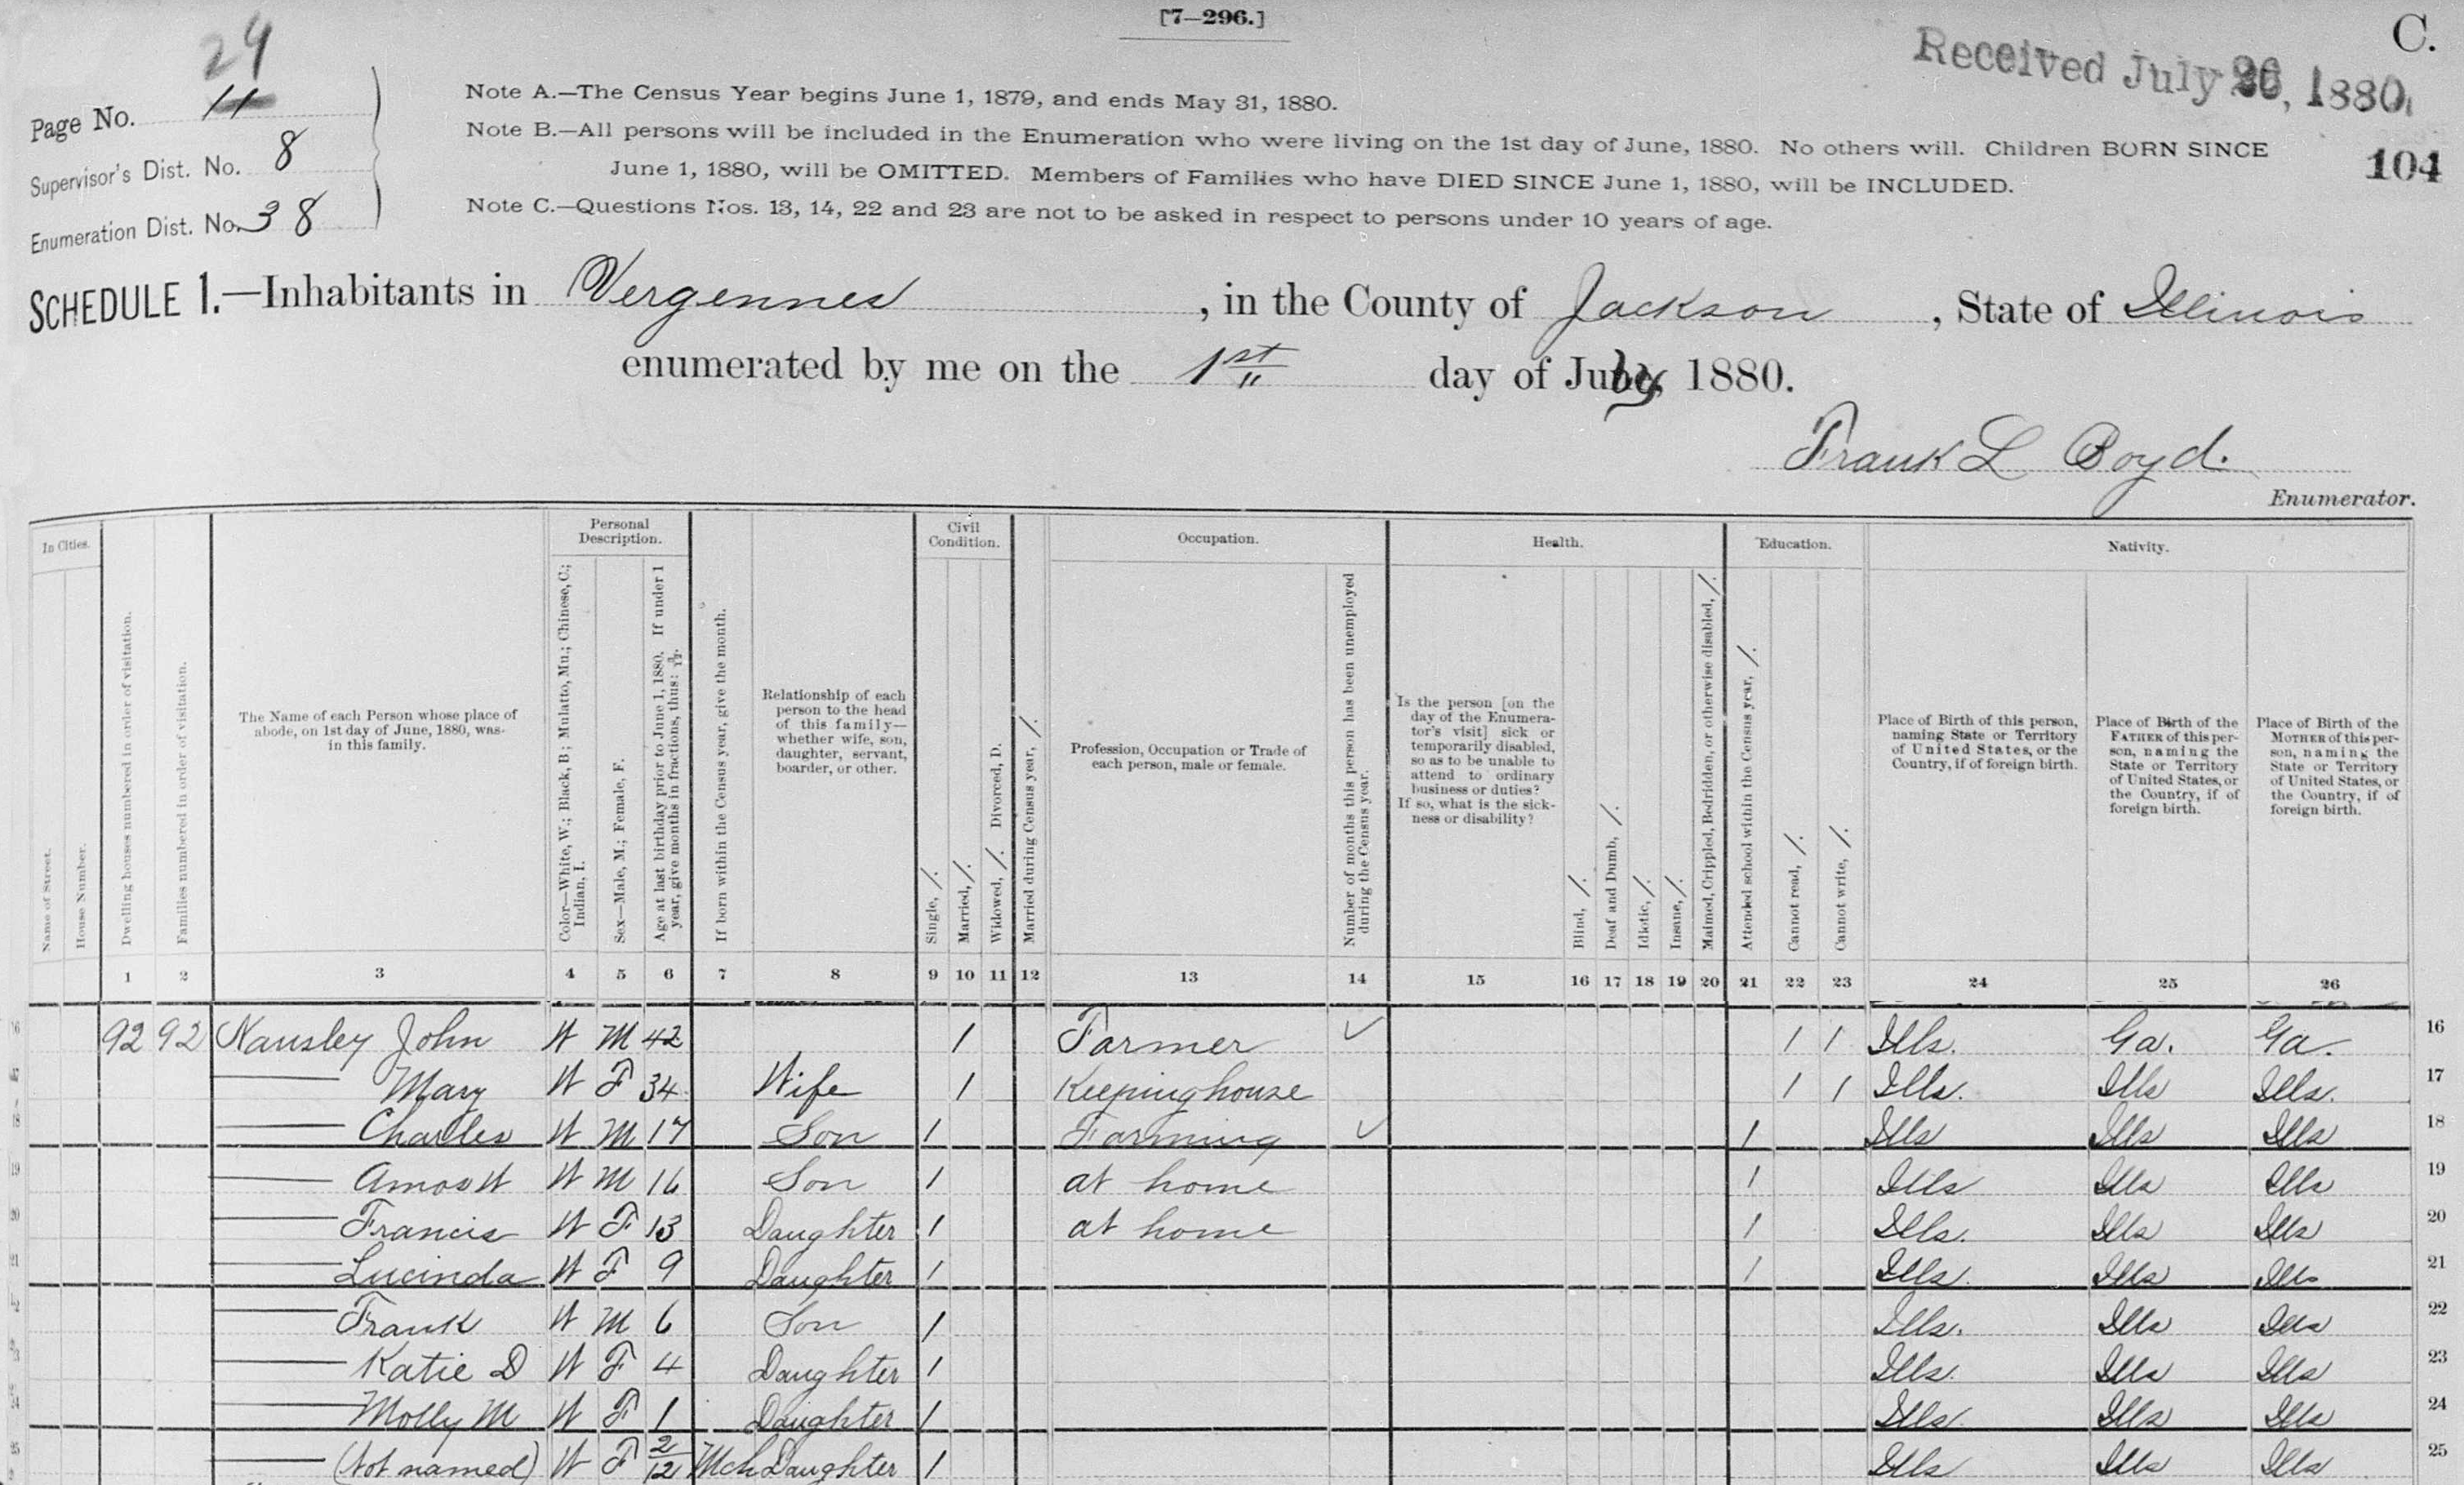 [7—296.]
C.
24
Page No. 11
Supervisor's Dist. No. 8
Enumeration Dist. No. 38
Received July 26, 1880
104
Note A.—The Census Year begins June 1, 1879, and ends May 31, 1880.
Note B.—All persons will be included in the Enumeration who were living on the 1st day of June, 1880. No others will. Children BORN SINCE
June 1, 1880, will be OMITTED. Members of Families who have DIED SINCE June 1, 1880, will be INCLUDED.
Note C.—Questions Nos. 13, 14, 22 and 23 are not to be asked in respect to persons under 10 years of age.
SCHEDULE 1.—Inhabitants in Vergennes, in the County of Jackson, State of Illinois
enumerated by me on the 1st day of July, 1880.
Frank L Boyd.
Enumerator.
In Cities.
Name of Street.
House Number.
Dwelling houses numbered in order of visitation.
Families numbered in order of visitation.
The Name of each Person whose place of
abode, on 1st day of June, 1880, was
in this family.
Personal
Description.
Color—White, W.; Black, B; Mulatto, Mu.; Chinese, C.;
Indian, I.
Sex—Male, M.; Female, F.
Age at last birthday prior to June 1, 1880. If under 1
year, give months in fractions, thus: 3/12.
If born within the Census year, give the month.
Relationship of each
person to the head
of this family—
whether wife, son,
daughter, servant,
boarder, or other.
Civil
Condition.
Single, /.
Married, /.
Widowed, /. Divorced, D.
Married during Census year, /.
Occupation.
Profession, Occupation or Trade of
each person, male or female.
Number of months this person has been unemployed
during the Census year.
Health.
Is the person [on the
day of the Enumera-
tor's visit] sick or
temporarily disabled,
so as to be unable to
attend to ordinary
business or duties?
If so, what is the sick-
ness or disability?
Blind, /.
Deaf and Dumb, /.
Idiotic, /.
Insane, /.
Maimed, Crippled, Bedridden, or otherwise disabled, /.
Education.
Attended school within the Census year, /.
Cannot read, /.
Cannot write, /.
Nativity.
Place of Birth of this person,
naming State or Territory
of United States, or the
Country, if of foreign birth.
Place of Birth of the
FATHER of this per-
son, naming the
State or Territory
of United States, or
the Country, if of
foreign birth.
Place of Birth of the
MOTHER of this per-
son, naming the
State or Territory
of United States, or
the Country, if of
foreign birth.
1 2 3 4 5 6 7 8 9 10 11 12 13 14 15 16 17 18 19 20 21 22 23 24 25 26
16 92 92 Nausley John W M 42 1 Farmer ✓ 1 1 Ills. Ga. Ga. 16
Mary W F 34 Wife 1 Keeping house 1 1 Ills. Ills Ills. 17
18 Charles W M 17 Son 1 Farming ✓ 1 Ills Ills Ills 18
19 Amos W W M 16 Son 1 at home 1 Ills Ills Ills 19
20 Francis W F 13 Daughter 1 at home 1 Ills. Ills Ills 20
21 Lucinda W F 9 Daughter 1 1 Ills. Ills Ills 21
Frank W M 6 Son 1 Ills. Ills Ills 22
Katie D W F 4 Daughter 1 Ills. Ills Ills 23
Molly M W F 1 Daughter 1 Ills. Ills Ills 24
25 (Not named) W F 2/12 Mch Daughter 1 Ills Ills Ills 25